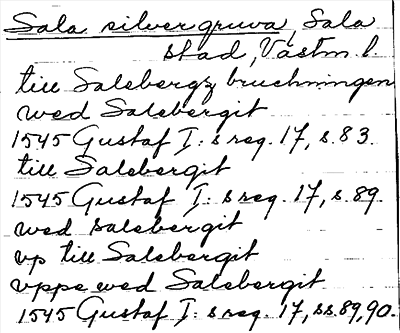 Sala silvergruva, Sala
stad, Västm l.
till Salsbergz bruckningen
wed Salsbergit
1545 Gustaf I: s reg. 17, s. 83.
till Salsbergit
1545 Gustaf I: s reg. 17, s. 89.
wed Salsbergit
vp till Salsbergit
vppe wed Salsbergit
1545 Gustaf I: s reg. 17, ss. 89, 90.